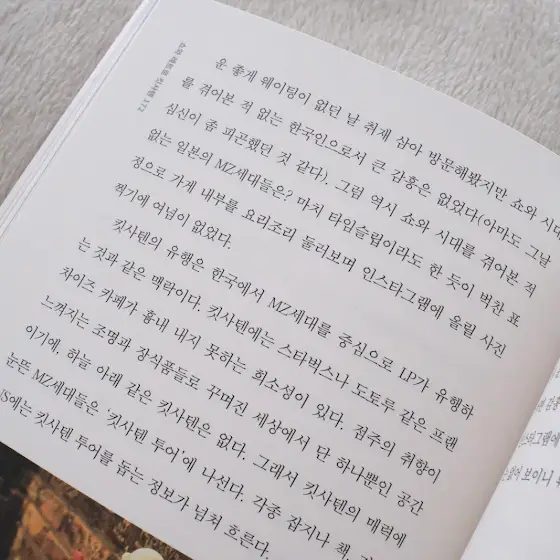 쇼와 레트로 킷사텐 172
운 좋게 웨이팅이 없던 날 취재 삼아 방문해봤지만 쇼와 시대
를 겪어본 적 없는 한국인으로서 큰 감흥은 없었다(아마도 그날
심신이 좀 피곤했던 것 같다). 그럼 역시 쇼와 시대를 겪어본 적
없는 일본의 MZ세대들은? 마치 타임슬립이라도 한 듯이 벅찬 표
정으로 가게 내부를 요리조리 둘러보며 인스타그램에 올릴 사진
찍기에 여념이 없었다.
킷사텐의 유행은 한국에서 MZ세대를 중심으로 LP가 유행하
는 것과 같은 맥락이다. 킷사텐에는 스타벅스나 도토루 같은 프랜
차이즈 카페가 흉내 내지 못하는 희소성이 있다. 점주의 취향이
느껴지는 조명과 장식품들로 꾸며진 세상에서 단 하나뿐인 공간
이기에, 하늘 아래 같은 킷사텐은 없다. 그래서 킷사텐의 매력에
눈뜬 MZ세대들은 '킷사텐 투어'에 나선다. 각종 잡지나 책,
에는 킷사텐 투어를 돕는 정보가 넘쳐 흐른다.
보이니